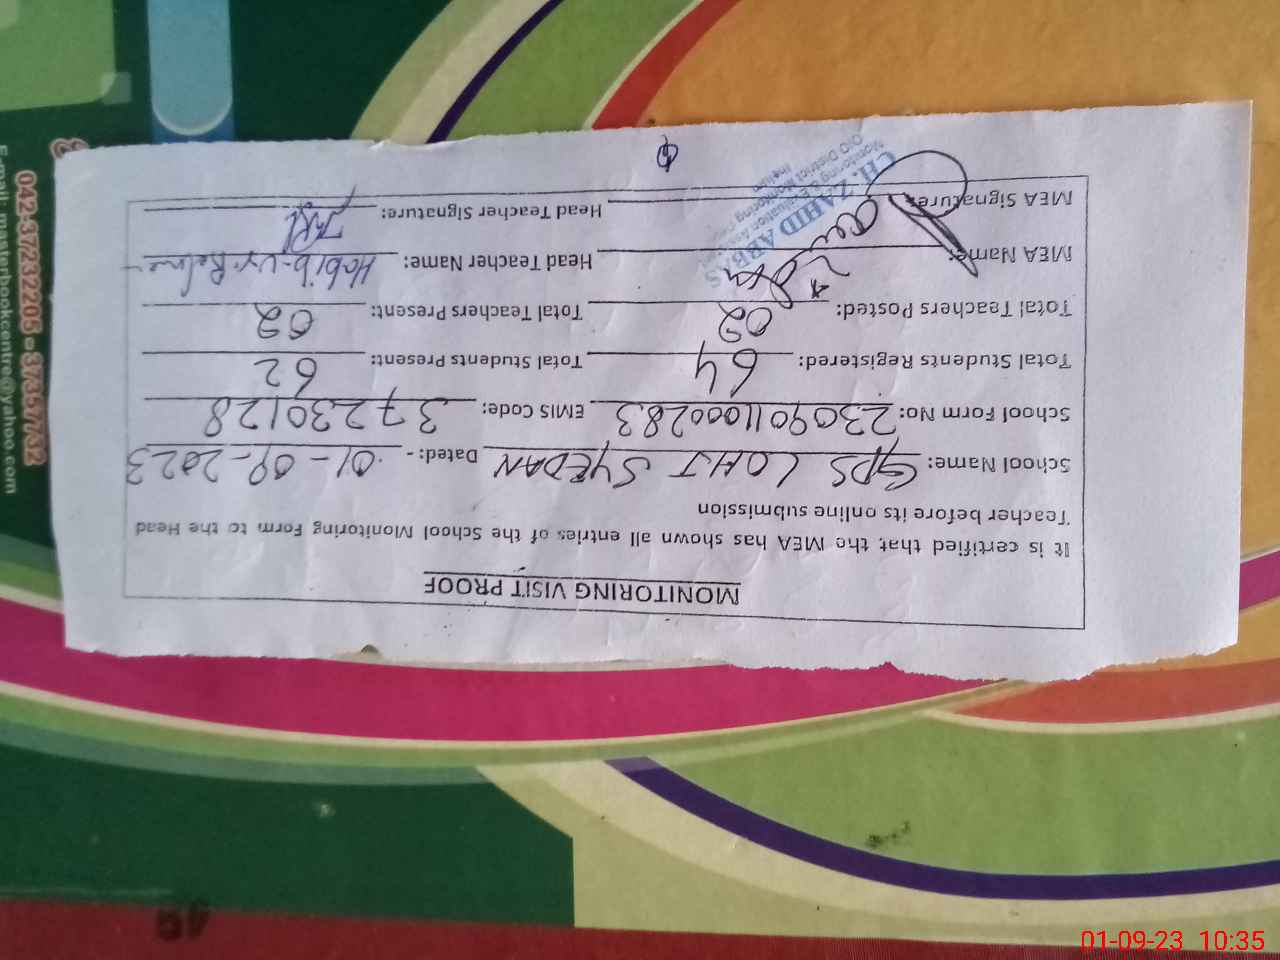 MONITORING VISIT PROOF
It is certified that the MEA has shown all entries of the School Monitoring Form to the Head
Teacher before its online submission
School Name: GPS LOHT SYEDAN Dated:- 01-09-2023
School Form No: 2309011000283 EMIS Code: 37230128
Total Students Registered: 64 Total Students Present: 62
Total Teachers Posted: 02 Total Teachers Present: 02
MEA Name: Head Teacher Name: Habib-ur-Rehman
MEA Signature: Head Teacher Signature:
CH. ZAHID ABBAS
Monitoring & Evaluation
O/O District Monitoring
Jhelum
042-37232205 - 37357732
E-mail: masterbookcentre@yahoo.com
01-09-23 10:35